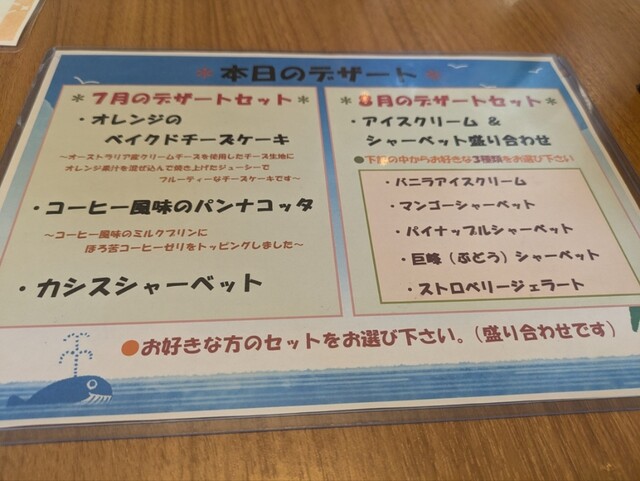 ＊本日のデザート＊
＊７月のデザートセット＊
・オレンジの
ベイクドチーズケーキ
～オーストラリア産クリームチーズを使用したチーズ生地に
オレンジ果汁を混ぜ込んで焼き上げたジューシーで
フルーティーなチーズケーキです～
・コーヒー風味のパンナコッタ
～コーヒー風味のミルクプリンに
ほろ苦コーヒーゼリをトッピングしました～
・カシスシャーベット
＊８月のデザートセット＊
・アイスクリーム ＆
シャーベット盛り合わせ
●下記の中からお好きな3種類をお選び下さい
・バニラアイスクリーム
・マンゴーシャーベット
・パイナップルシャーベット
・巨峰（ぶどう）シャーベット
・ストロベリージェラート
●お好きな方のセットをお選び下さい。（盛り合わせです）